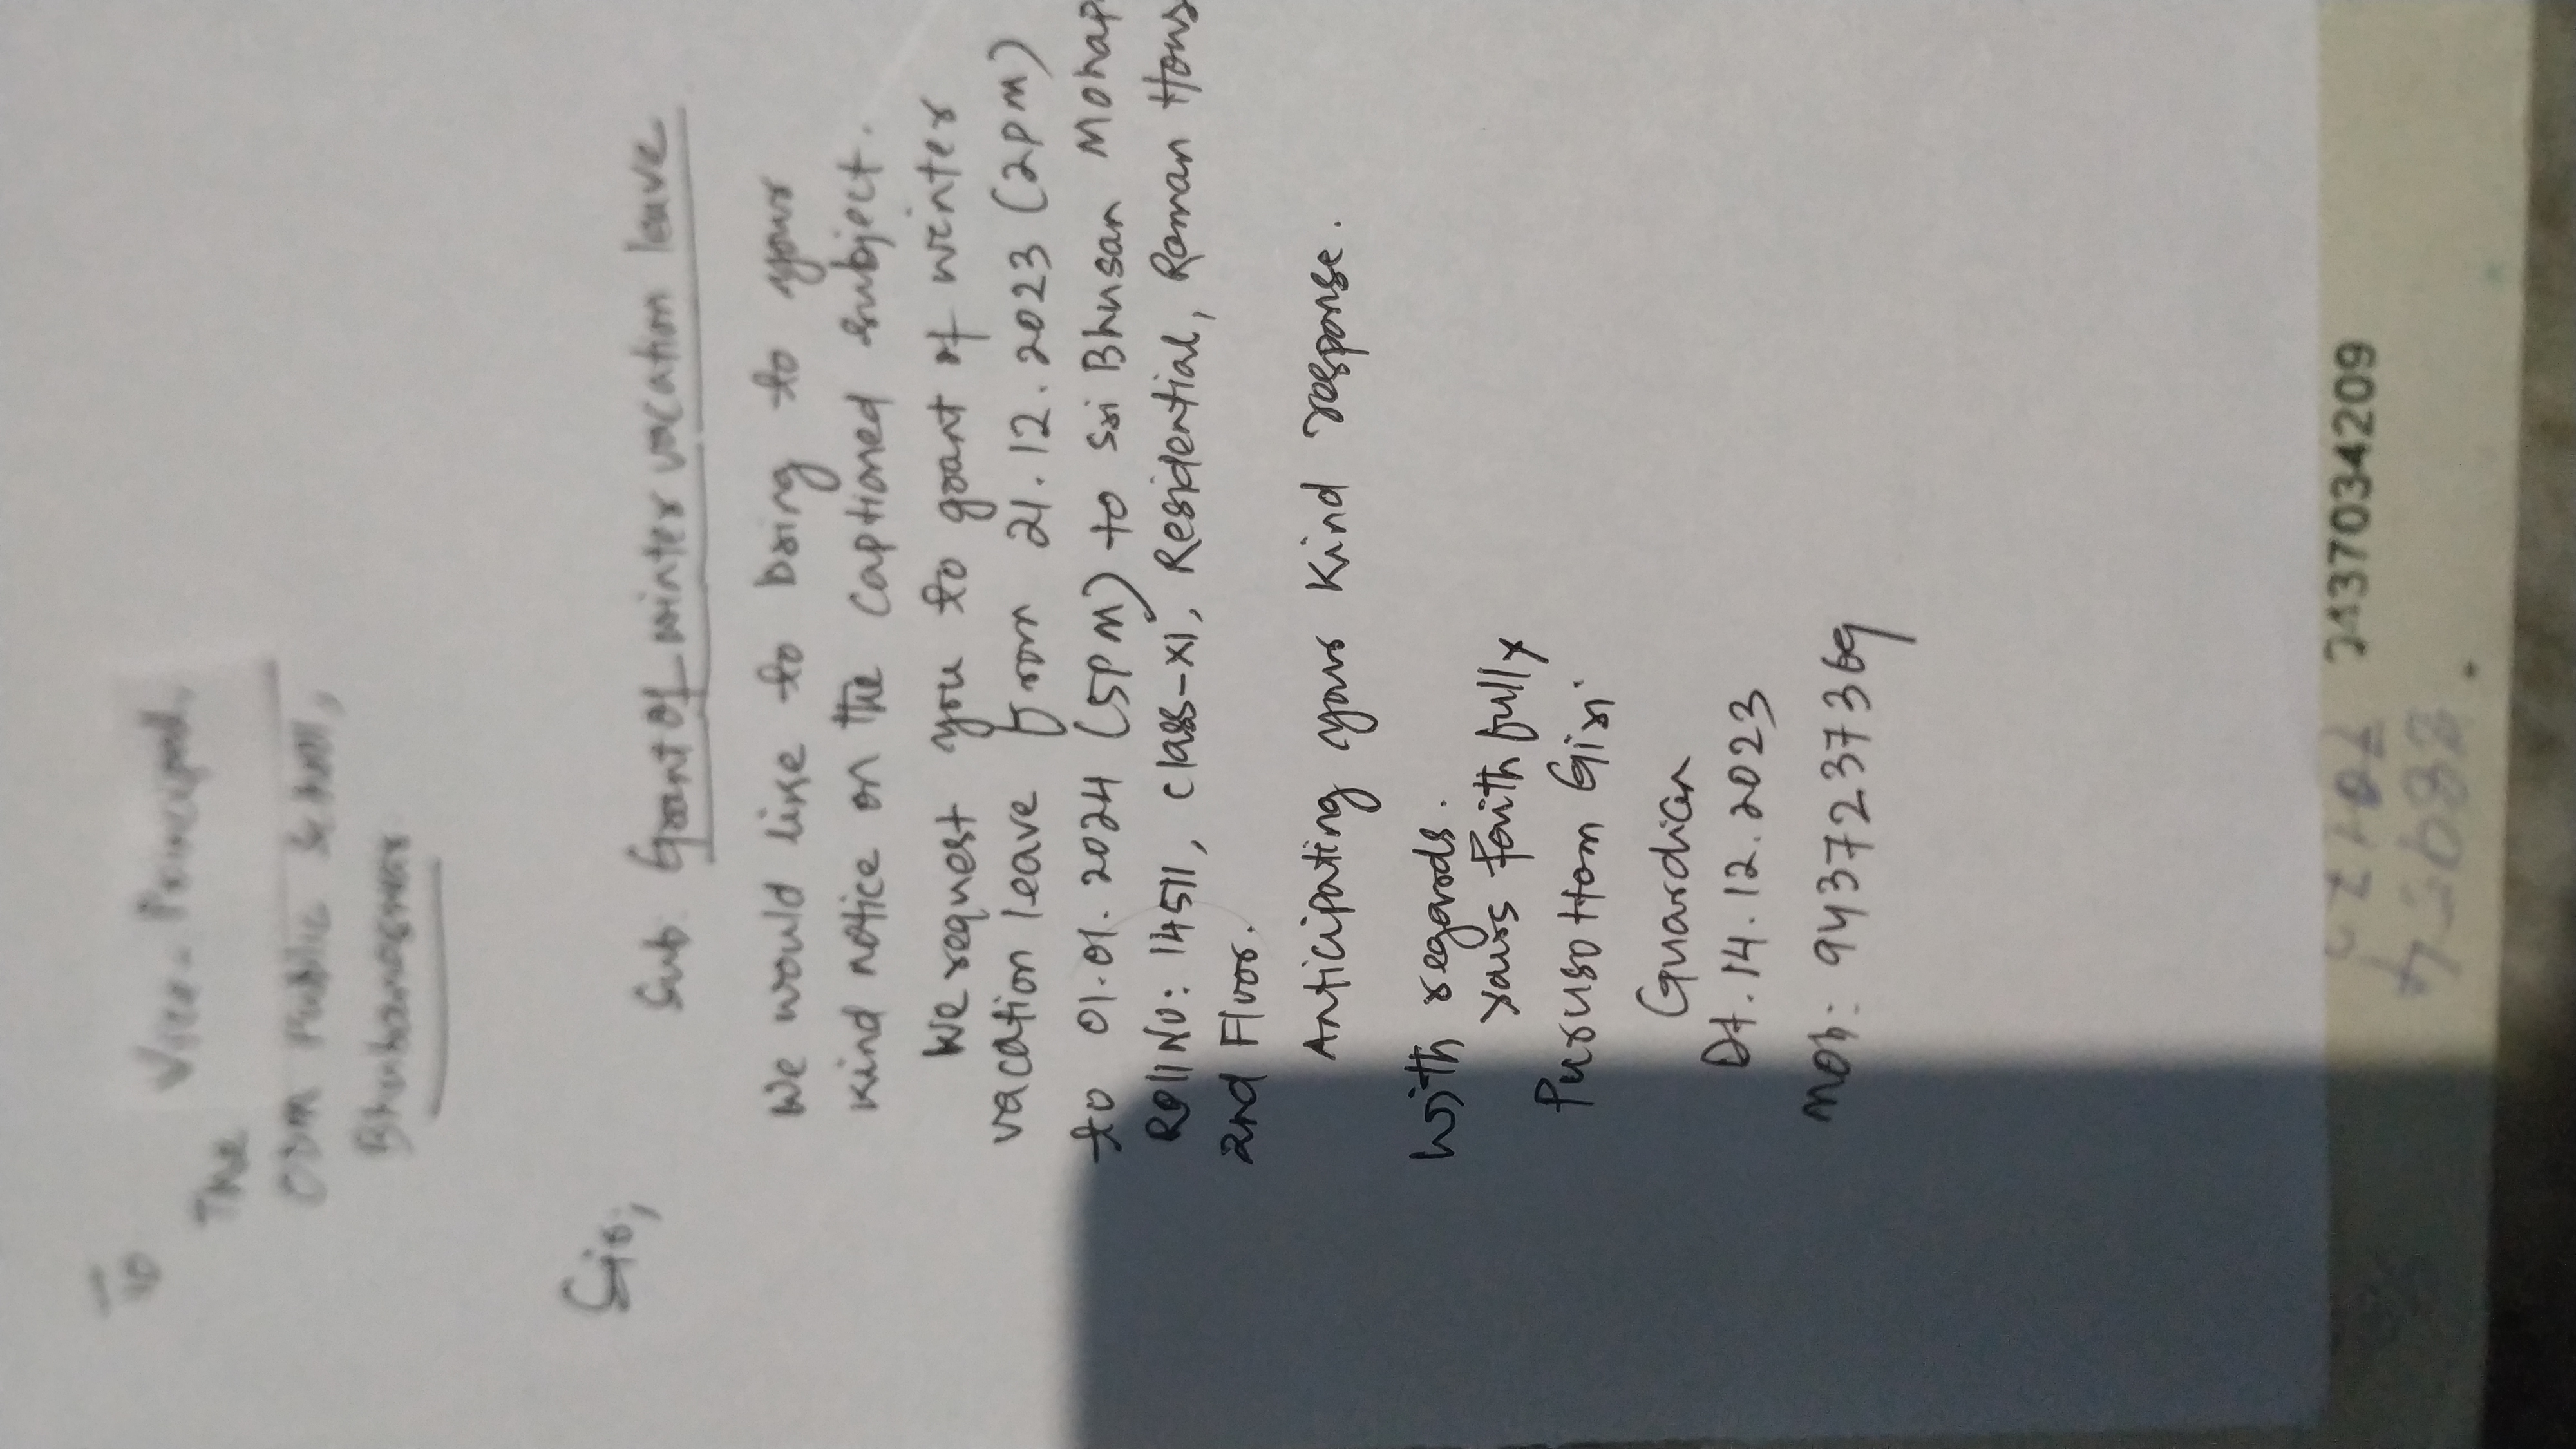 To
The Vice-Principal,
ODM Public School,
Bhubaneswar
Sir,
Sub: Grant of winter vacation leave
We would like to bring to your
kind notice on the captioned subject.
We request you to grant of winter
vacation leave from 21.12.2023 (2PM)
to 01.01.2024 (5PM) to Sri Bhusan Mohap
Roll No: 14511, class-XI, Residential, Roman Hous
2nd Floor.
Anticipating your kind response.
With regards.
Yours faithfully
Purusottam Giri
Guardian
Dt. 14.12.2023
Mob: 9437237369
2437034209